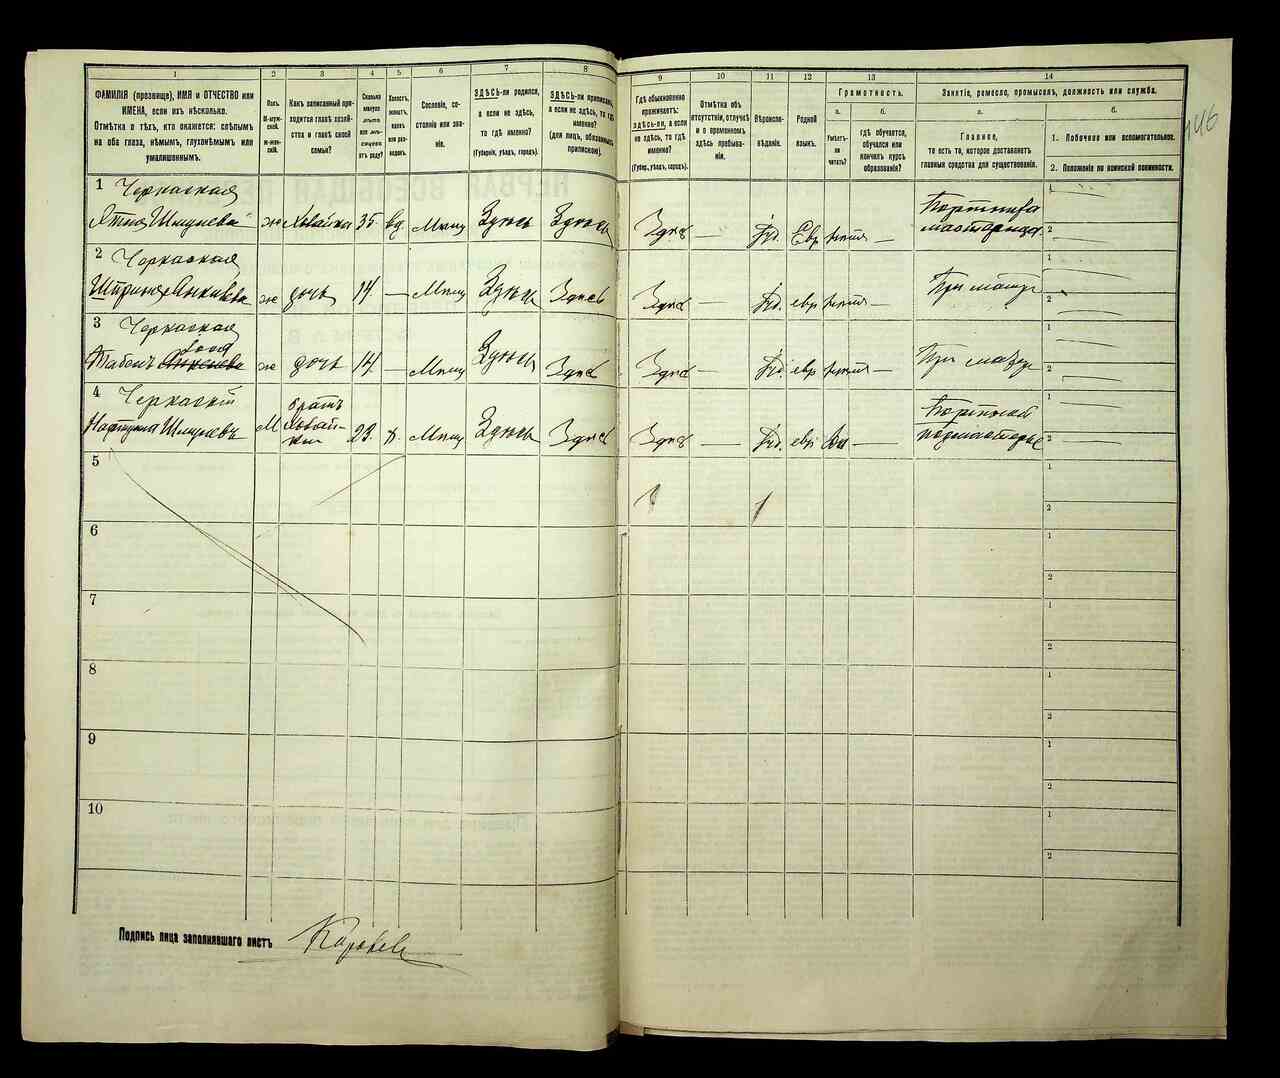 1 2 3 4 5 6 7 8 9 10 11 12 13 14
ФАМИЛІЯ (прозвище), ИМЯ и ОТЧЕСТВО или
ИМЕНА, если ихъ нѣсколько.
Отмѣтка о тѣхъ, кто окажется: слѣпымъ
на оба глаза, нѣмымъ, глухонѣмымъ или
умалишеннымъ.
Полъ.
М-муж-
ской.
ж-жен-
скій.
Какъ записанный при-
ходится главѣ хозяй-
ства и главѣ своей
семьи?
Сколько
минуло
лѣтъ
или мѣ-
сяцевъ
отъ роду?
Холостъ,
женатъ,
вдовъ
или раз-
веденъ.
Сословіе, со-
стояніе или зва-
ніе.
ЗДѢСЬ-ли родился,
а если не здѣсь,
то гдѣ именно?
(Губернія, уѣздъ, городъ).
ЗДѢСЬ-ли приписанъ,
а если не здѣсь, то гдѣ
именно?
(для лицъ, обязанныхъ
припискою).
Гдѣ обыкновенно
проживаетъ:
здѣсь-ли, а если
не здѣсь, то гдѣ
именно?
(Губер., уѣздъ, городъ).
Отмѣтка объ
отсутствіи, отлучкѣ
и о временномъ
здѣсь пребыва-
ніи.
Вѣроиспо-
вѣданіе.
Родной
языкъ.
Грамотность.
а. б.
Умѣетъ-
ли
читать?
гдѣ обучается,
обучался или
кончилъ курсъ
образованія?
Занятіе, ремесло, промыселъ, должность или служба.
а. б.
Главное,
то есть то, которое доставляетъ
главныя средства для существованія.
1. Побочное или вспомогательное.
2. Положеніе по воинской повинности.
146
1 Черкаская
Шмулева ж Хозяйка 35 вд. Мѣщ Здѣсь Здѣсь Здѣсь — Іуд. Евр —
Портниха
мастерица
1
2
2 Черкаская
ж дочь 14 — Мѣщ Здѣсь Здѣсь Здѣсь — Іуд. евр —
При матери
1
2
3 Черкаская
ж дочь 14 — Мѣщ Здѣсь Здѣсь Здѣсь — Іуд. евр —
При матери
1
2
4 Черкаскій
Шмулевъ М братъ хозяй-
ки 23 х. Мѣщ Здѣсь Здѣсь Здѣсь — Іуд. евр —
Портной
подмастерье
1
2
5
1
2
6
1
2
7
1
2
8
2
9
1
2
10
1
2
Подпись лица заполнявшаго листъ